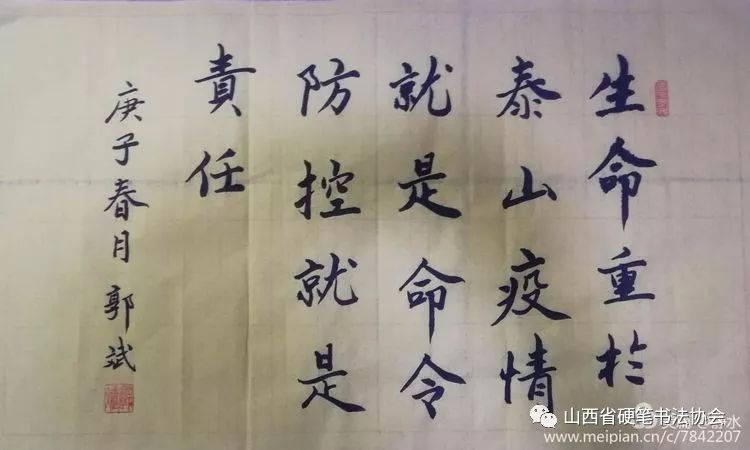 生命重於
泰山疫情
就是命令
防控就是
責任
庚子春月郭斌
山西省硬笔书法协会
www.meipian.cn/c/7842207